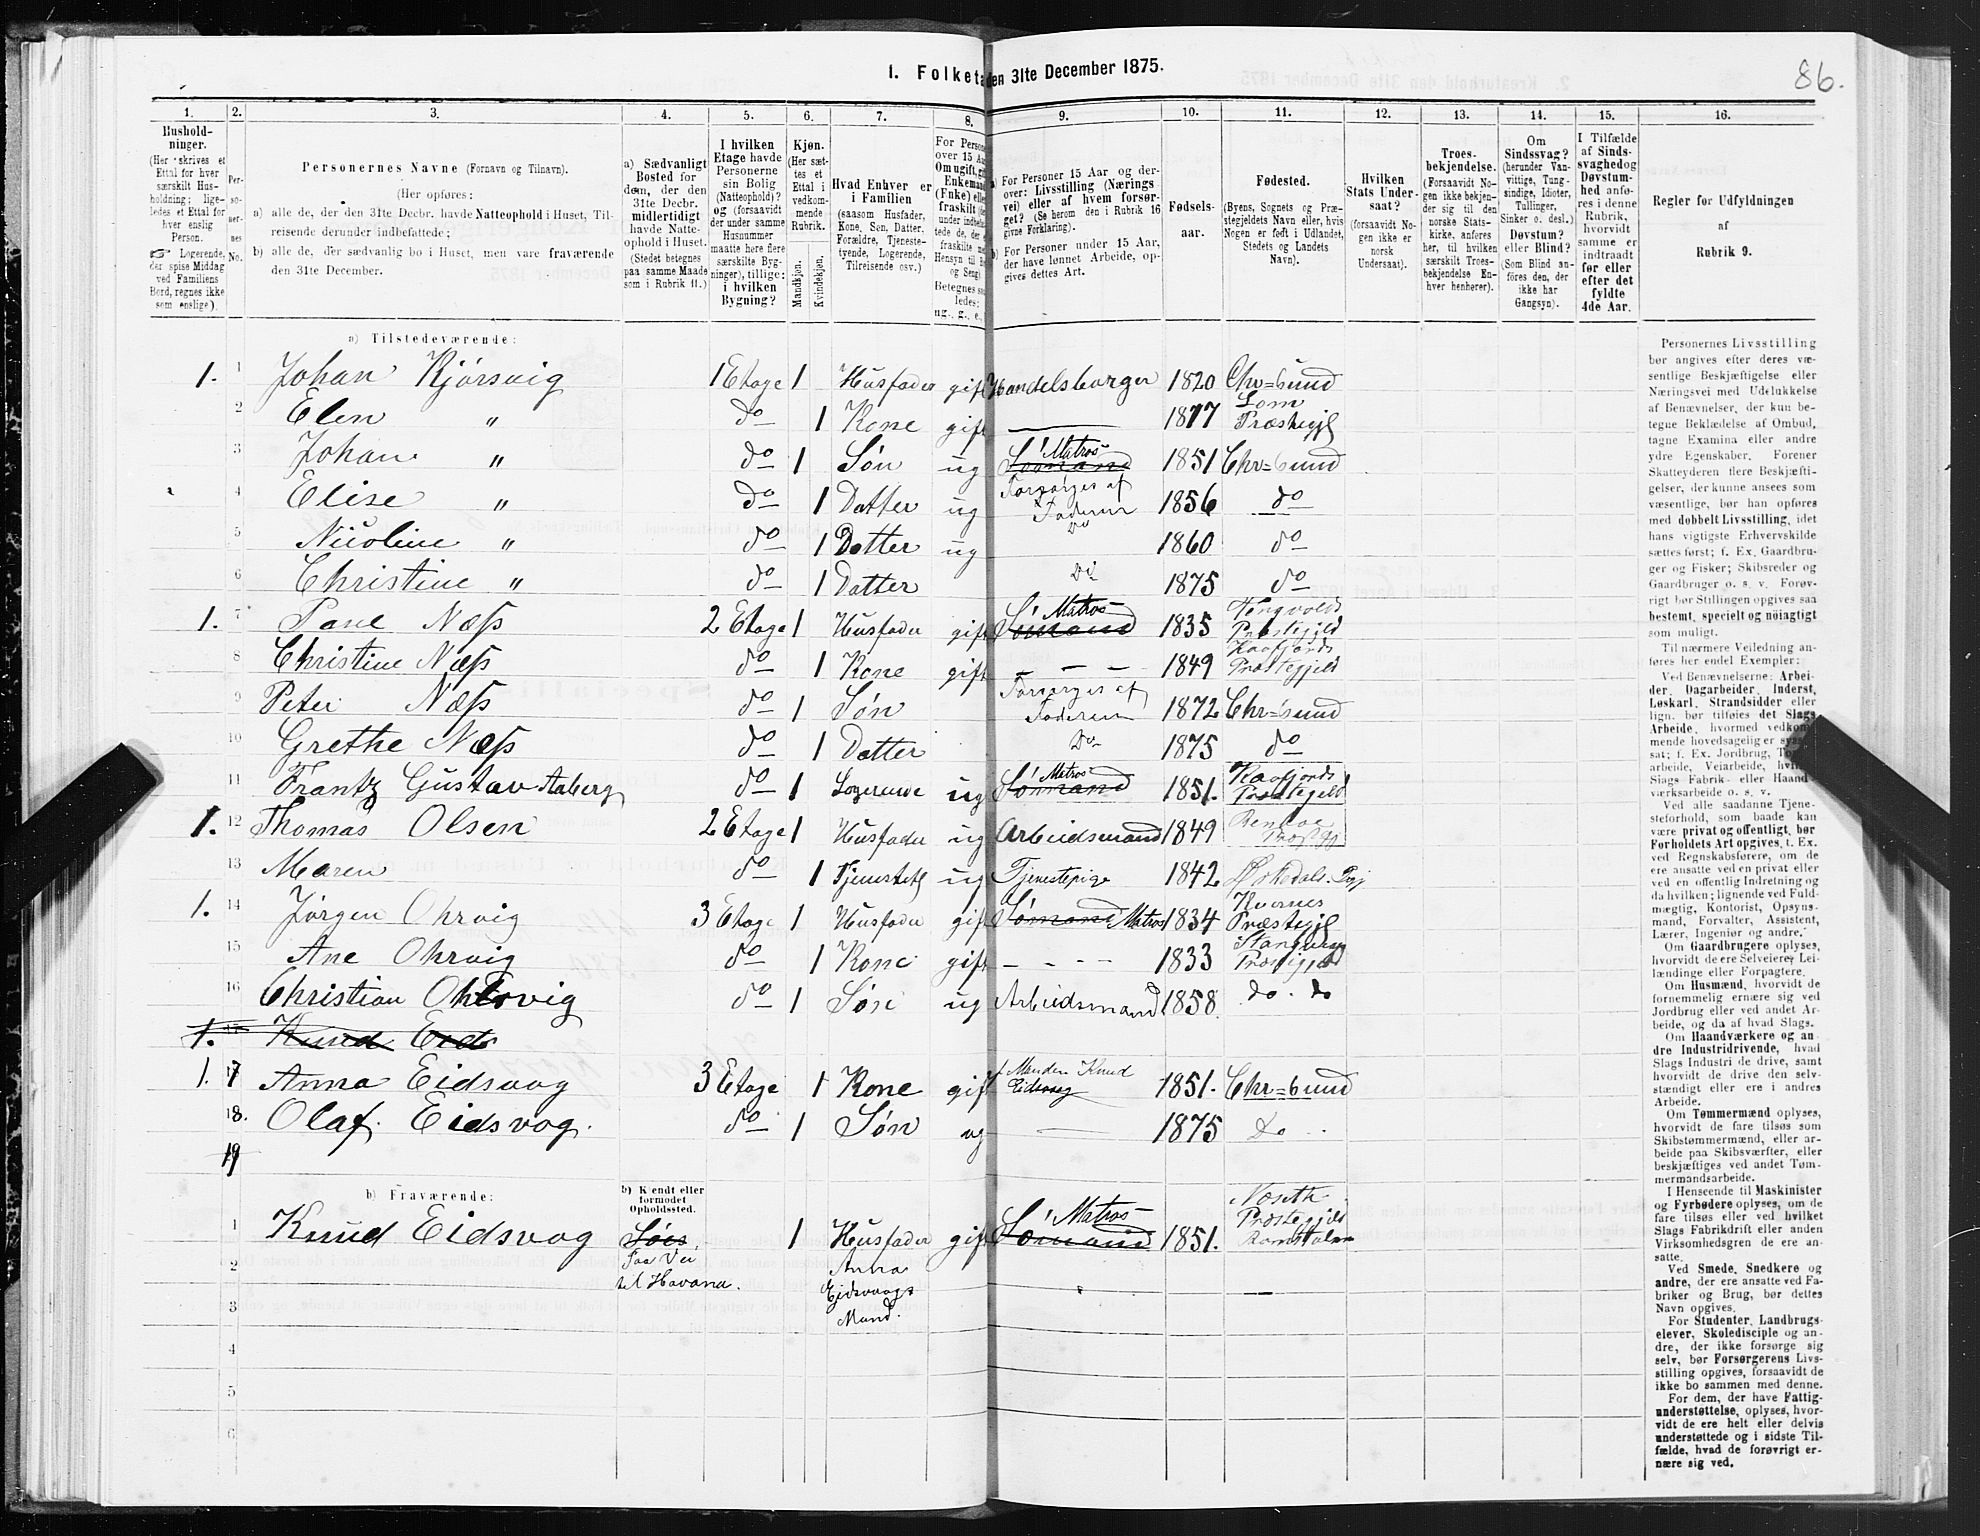 86.
1. Folketa den 31te December 1875.
1. 2. 3. 4. 5. 6. 7. 8. 9. 10. 11. 12. 13. 14. 15. 16.
Hushold-
ninger.
(Her skrives et
Ettal for hver
særskilt Hus-
holdning; lige-
ledes et Ettal for
hver enslig
Person.
☞ Logerende,
der spise Middag
ved Familiens
Bord, regnes ikke
som enslige).
Per-
so-
ner-
nes
No.
Personernes Navne (Fornavn og Tilnavn).
(Her opføres:
a) alle de, der den 31te Decbr. havde Natteophold i Huset, Til-
reisende derunder indbefattede;
b) alle de, der sædvanlig bo i Huset, men vare fraværende
den 31te December.
a) Sædvanligt
Bosted for
dem, der den
31te Decbr.
midlertidigt
havde Natte-
ophold i Huset.
(Stedet betegnes
paa samme Maade
som i Rubrik 11.)
I hvilken
Etage havde
Personerne
sin Bolig
(Natteophold)?
og (forsaavidt
der under samme
Husnummer
maatte høre flere
særskilte Byg-
ninger), tillige:
i hvilken
Bygning?
Kjøn.
(Her sæt-
tes et
Ettal i
vedkom-
mende
Rubrik.
Mandkjøn.
Kvindekjøn.
Hvad Enhver er
i Familien
(saasom Husfader,
Kone, Søn, Datter,
Forældre, Tjeneste-
tyende, Logerende,
Tilreisende osv.)
For Person
over 15 Aa
Om ugift, gi
Enkemand
(Enke) elle
fraskilt
under indbe
tede de,
fraskilte
Hensyn til
og Seng
Betegnes
ledes:
ug., g., e.,
a) For Personer 15 Aar og der-
over: Livsstilling (Nærings
vei) eller af hvem forsør-
get? (Se herom den i Rubrik 16
givne Forklaring).
b) For Personer under 15 Aar,
der have lønnet Arbeide, op-
gives dettes Art.
Fødsels-
aar.
Fødested.
(Byens, Sognets og Præ-
stegjeldets Navn eller, hvis
Nogen er født i Udlandet,
Stedets og Landets
Navn).
Hvilken
Stats Under-
saat?
(forsaavidt No-
gen ikke er
norsk
Undersaat).
Troes-
bekjendelse.
(Forsaavidt No-
gen ikke bekjen-
der sig til den
norske Stats-
kirke, anføres
her, til hvilken
særskilt Troes-
bekjendelse En-
hver henhører).
Om
Sindssvag?
(herunder Van-
vittige, Tung-
sindige, Idioter,
Tullinger,
Sinker o. desl.)
Døvstum?
eller Blind?
(Som Blind an-
føres den, der
ikke har
Gangsyn).
I Tilfælde
af Sinds-
svaghed og
Døvstum-
hed anfø-
res i denne
Rubrik,
hvorvidt
samme er
indtraadt
før eller
efter det
fyldte
4de Aar.
Regler for Udfyldningen
af
Rubrik 9.
a) Tilstedeværende:
1. 1 Johan Kjørsvig 1 Etage 1 Husfader gift Handelsborger 1820 Chr=sund
2 Elen " do 1 Kone gift — 1817 Lom Præstegjl
3 Johan " do 1 Søn ug Sømand Matros 1851 Chr=sund
4 Elise " do 1 Datter ug Forsørges af Faderen 1856 do
5 Nicoline " do 1 Datter ug Do 1860 do
6 Christine " do 1 Datter Do 1875 do
1. 7 Næss 2 Etage 1 Husfader gift Sømand Matros 1835 Præstegjeld
8 Christine Næss do 1 Kone gift — — — 1849 Præstegjeld
9 Peter Næss do 1 Søn Forsørges af Faderen 1872 Chr=sund
10 Grethe Næss do 1 Datter Do 1875 do
11 Frantz Gustav Aaberg do 1 Logerende ug Sømand Matros 1851. Præstegjeld
1. 12 Thomas Olsen 2 Etage 1 Husfader ug Arbeidsmand 1849
13 Maren do 1 ug Tjenestepige 1842
1. 14 Jørgen Ohrvig 3 Etage 1 Husfader gift Sømand Matros 1834 Kvernes Præstegjl
15 Ane Ohrvig do 1 Kone gift — - - - 1833 Præstegjeld
16 Christian do 1 Søn ug Arbeidsmand 1858. do. do
1. 17 Knud Eids
1. 17 Anna Eidsvog 3 Etage 1 Kone gift f Manden Knud Eidsvog 1851. Chr=sund
18. Olaf. Eidsvog. do 1 Søn ug — 1875 Do
19
b) Fraværende:
b) Kjendt eller
formodet
Opholdssted.
1 Knud Eidsvog Søes Paa Vei til Havana. 1 Husfader Anna Eidsvaags Mand. gift Sømand Matros 1851. Næseth Præstegjeld
2
3
4
5
6
Personernes Livsstilling
bør angives efter deres væ-
sentlige Beskjæftigelse eller
Næringsvei med Udelukkelse
af Benævnelser, der kun be-
tegne Beklædelse af Ombud,
tagne Examina eller andre
ydre Egenskaber. Forener
Skatteyderen flere Beskjæfti-
gelser, der kunne ansees som
væsentlige, bør han opføres
med dobbelt Livsstilling, idet
hans vigtigste Erhvervskilde
sættes først; f. Ex. Gaardbru-
ger og Fisker; Skibsreder og
Gaardbruger o. s. v. Forøv-
rigt bør Stillingen opgives saa
bestemt, specielt og nöiagtigt
som muligt.
Til nærmere Veiledning an-
føres her endel Exempler:
Ved Benævnelserne: Arbei-
der, Dagarbeider, Inderst,
Løskarl, Strandsidder eller
lign. bør tilføies det Slags
Arbeide, hvormed vedkom-
mende hovedsagelig er syssel-
sat; f. Ex. Jordbrug,
arbeide, Veiarbeide,
Slags Fabrik- eller Haand-
værksarbeide o. s. v.
Ved alle saadanne Tjene-
steforhold, som baade kan
være privat og offentligt, bør
Forholdets Art opgives, t. Ex.
ved Regnskabsførere, om de
ere ansatte ved en privat eller
ved en offentlig Indretning og
da hvilken; lignende ved Fuld-
mægtig, Kontorist, Opsyns-
mand, Forvalter, Assistent,
Lærer, Ingeniør og andre.
Om Gaardbrugere oplyses,
hvorvidt de ere Selveiere, Lei-
lændinge eller Forpagtere.
Om Husmænd, hvorvidt de
fornemmelig ernære sig ved
Jordbrug eller ved andet Ar-
beide, og da af hvad Slags.
Om Haandværkere og an-
dre Industridrivende, hvad
Slags Industri de drive, samt
hvorvidt de drive den selv-
stændigt eller ere i andres
Arbeide.
Om Tømmermænd oplyses,
hvorvidt de fare tilsøs som
Skibstømmermænd, eller ar-
beide paa Skibsværfter, eller
beskjæftiges ved andet Tøm-
mermandsarbeide.
I Henseende til Maskinister
og Fyrbødere oplyses, om de
fare tilsøs eller ved hvilket
Slags Fabrikdrift eller anden
Virksomhedsgren de ere an-
satte.
Ved Smede, Snedkere og
andre, der ere ansatte ved Fa-
briker og Brug, bør dettes
Navn opgives.
For Studenter, Landbrugs-
elever, Skoledisciple og an-
dre, der ikke forsørge sig
selv, bør Forsørgerens Livs-
stilling opgives, forsaavidt de
ikke bo sammen med denne.
For dem, der have Fattig-
understøttelse, oplyses, hvor-
vidt de ere helt eller delvis
understøttede og i sidste Til-
fælde, hvad de forøvrigt er-
nære sig ved.